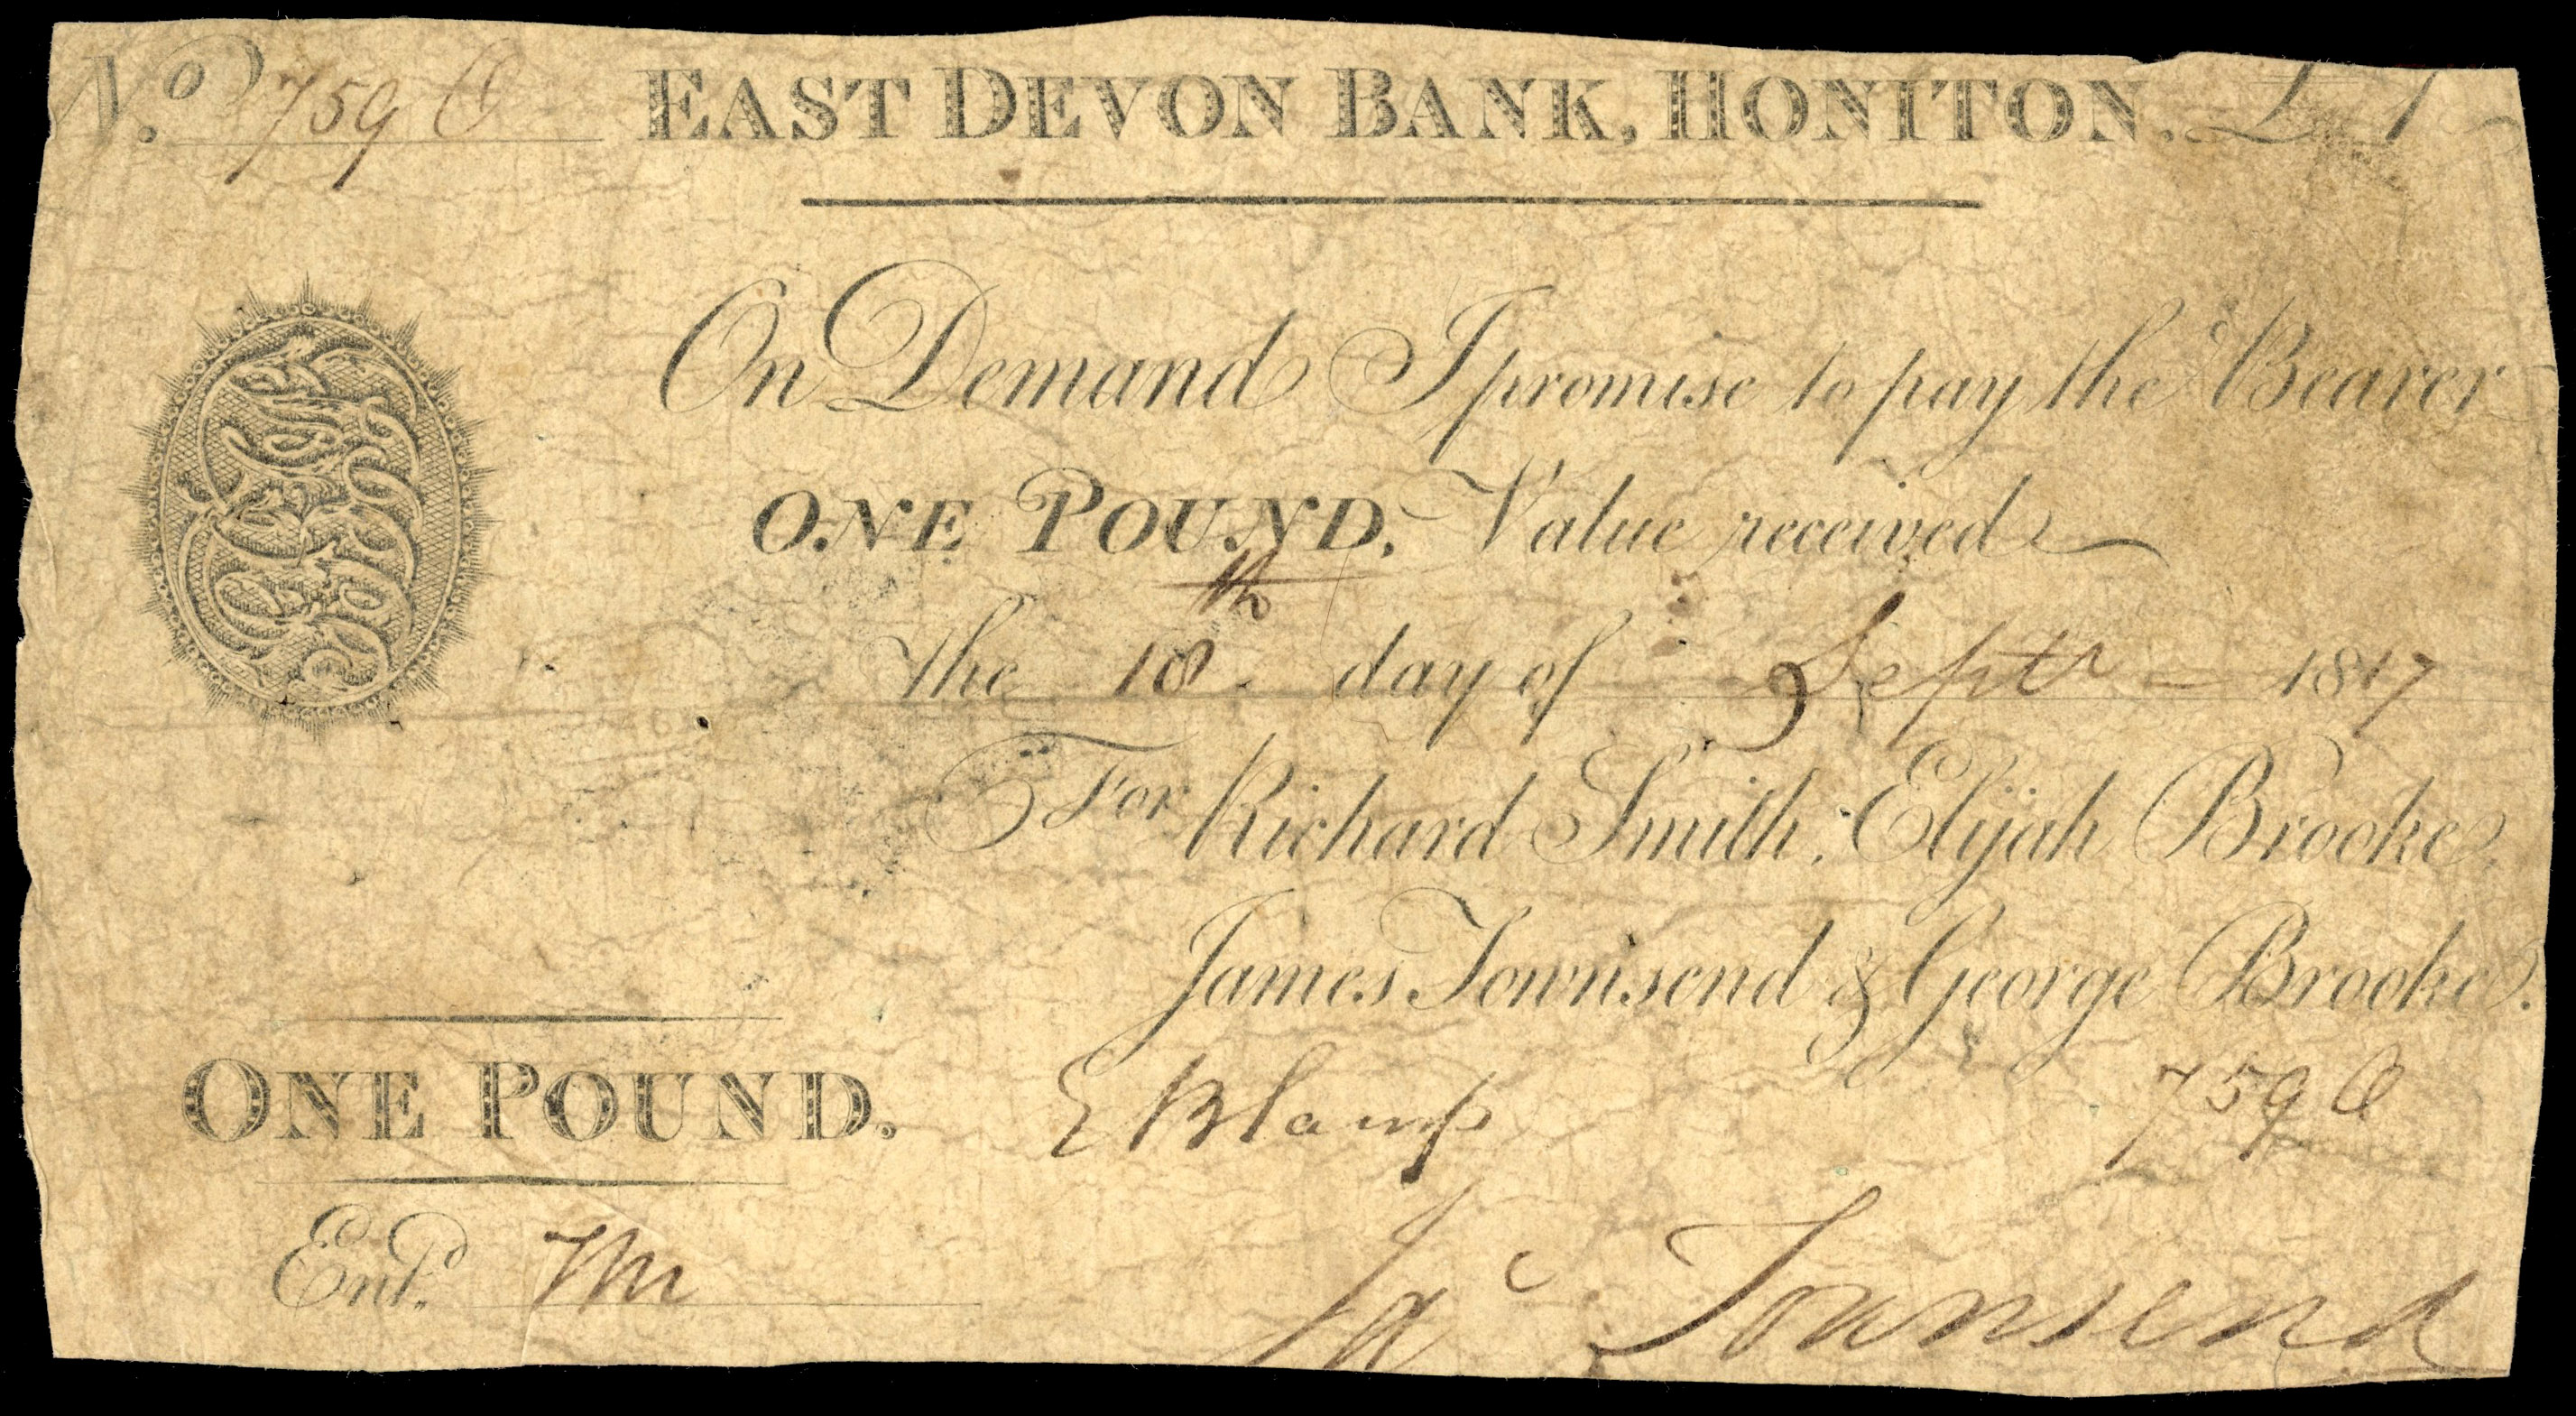 No. 7590 EAST DEVON BANK, HONITON. £ 1
On Demand I promise to pay the Bearer
ONE POUND, Value received
The 18th day of Septr 1817
For Richard Smith, Elijah Brooke,
James Townsend & George Brooke.
ONE POUND.
7590
Entd.
Jas Townsend